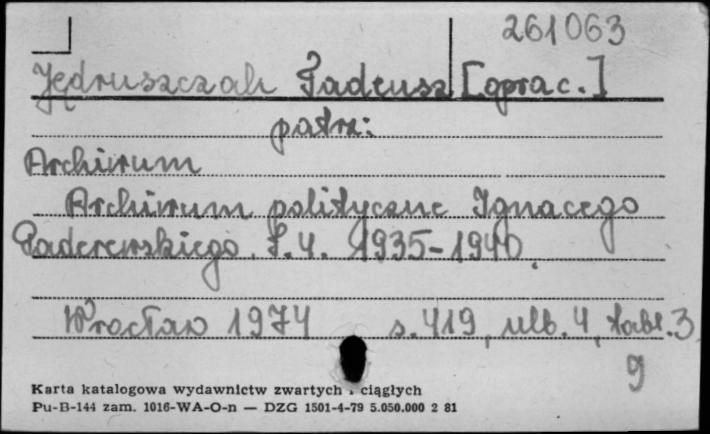 261063
Jędruszczak Tadeusz [oprac.]
patrz:
Archiwum
Archiwum polityczne Ignacego
Paderewskiego. T.4. 1935-1940.
Wrocław 1974 s. 419, nlb. 4, tabl. 3
9
Karta katalogowa wydawnictw zwartych i ciągłych
Pu-B-144 zam. 1016-WA-O-n — DZG 1501-4-79 5.050.000 2 81